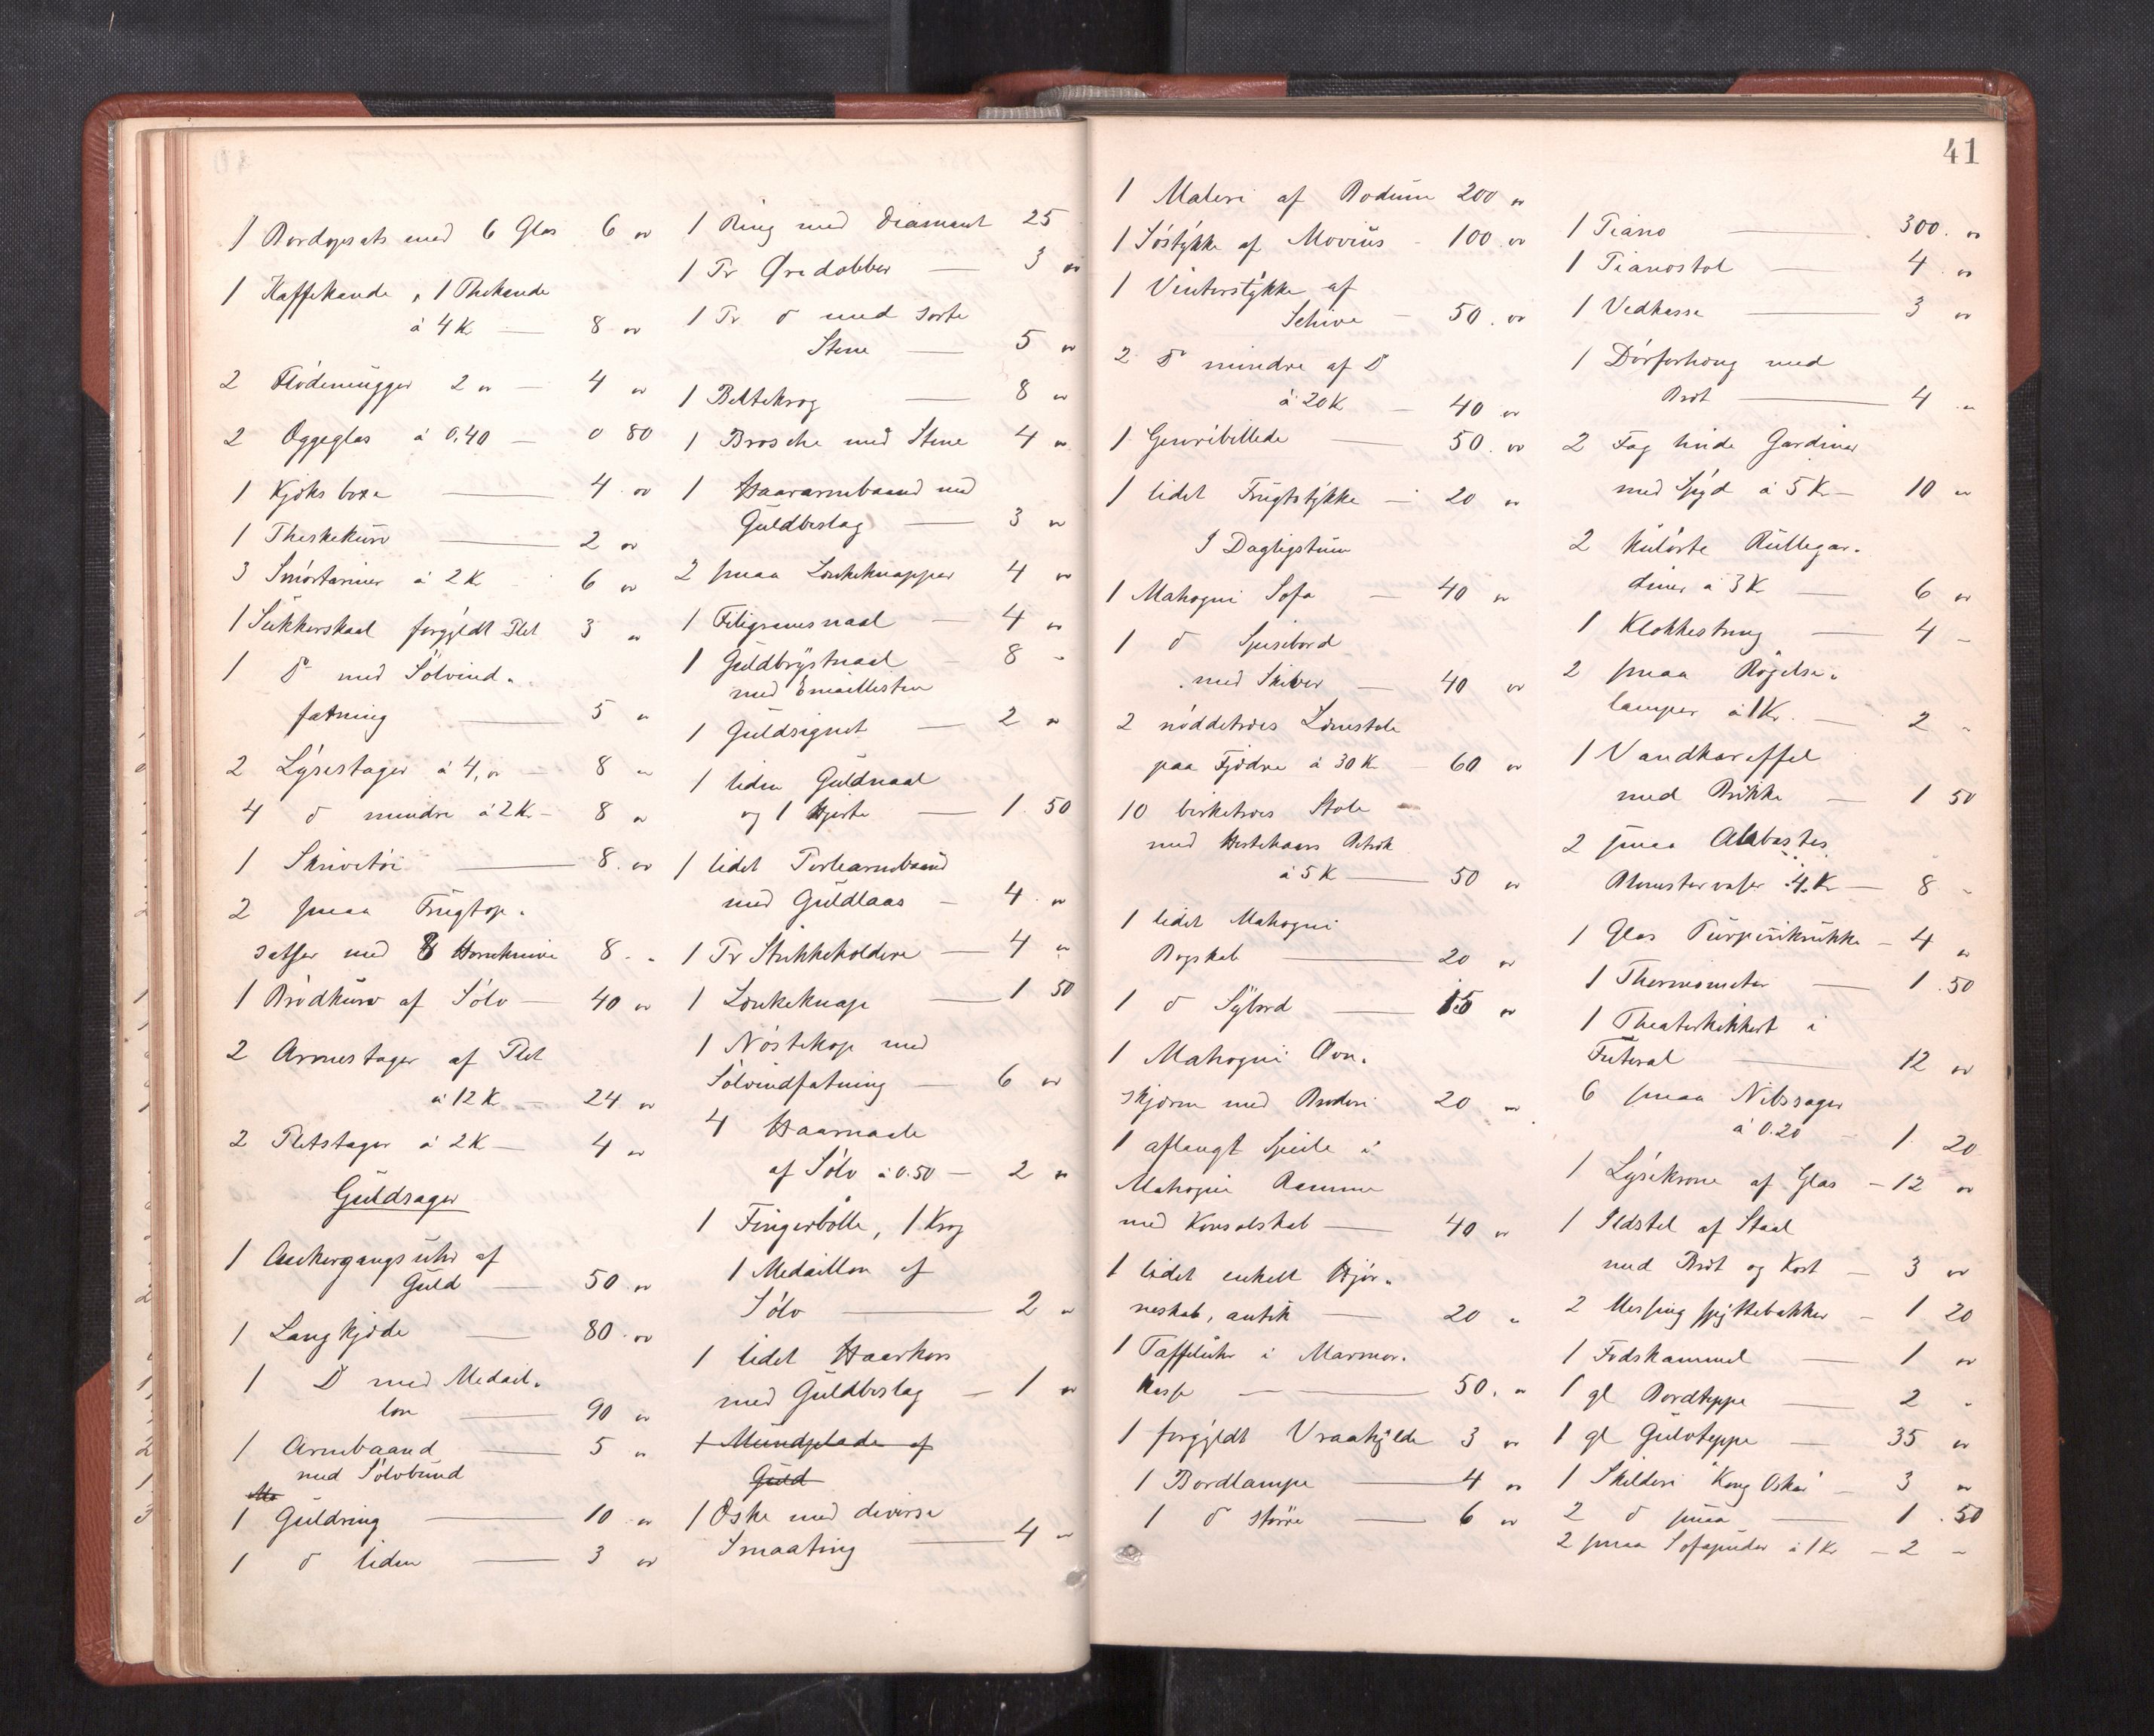 1 Bordopsats med 6 Glas 6 „
1 Kaffekande, 1 Thekande
à 4 K — 8 „
2 Flödemugger 2 „ — 4 „
2 Æggeglas à 0.40 — 0 80
1 Kjæks boxe — 4 „
1 Theskekurv — 2 „
3 Smörtariner à 2 K 6 „
1 Sukkerskaal forgyldt Plet 3 „
1 do med Sölvind-
fatning — 5 „
2 Lysestager à 4, „ — 8 „
4 do mindre à 2 K — 8 „
1 Skrivetöi — 8 „
2 smaa Frugtop-
satser med 8 Hornknive 8 „
1 Brödkurv af Sölv — 40 „
2 Armestager af Plet
à 12 K — 24 „
2 Pletstager à 2 K — 4 „
Guldsager
1 Ankergangsuhr af
Guld — 50 „
1 Langkjæde — 80 „
1 Do med Medail-
lon — 90 „
1 Armbaand — 5 „
med Sölvbund
1 Guldring — 10 „
1 do liden — 3 „
1 Ring med Diamant 25
1 Pr Øredobber — 3 „
1 Pr do med sorte
Stene — 5 „
1 Beltekrog — 8 „
1 Brosche med Stene 4 „
1 Haararmbaand med
Guldbeslag — 3 „
2 smaa Lænkeknapper 4 „
1 Filigransnaal — 4 „
1 Guldbrystnaal — 8 „
med Emaillesten
1 Guldsignet — 2 „
1 liden Guldnaal
og 1 Hjerte — 1 50
1 lidet Perlearmbaand
med Guldlaas — 4 „
1 Pr Stukkeholdere — 4 „
1 Lænkeknap — 1 50
1 Nöstekop med
Sölvindfatning — 6 „
4 Haarnaale
af Sölv à 0.50 — 2 „
1 Fingerbölle, 1 Krog
1 Medaillon af
Sölv — 2 „
1 lidet Haarkors
med Guldbeslag — 1 „
1 Mundplade af
Guld
1 Æske med diverse
Smaating — 4 „
41
1 Maleri af Bodum 200 „
1 Söstykke af Movius — 100 „
1 Vinterstykke af
Schive — 50 „
2 do mindre af do
à 20 K — 40 „
1 Genrebillede — 50 „
1 lidet Frugtstykke — 20 „
I Dagligstuen
1 Mahogni Sofa — 40 „
1 do Spisebord
med Skiver — 40 „
2 nöddetræes Lænestole
paa Fjædre à 30 K — 60 „
10 birketræes Stole
med Hestehaars Betræk
à 5 K — 50 „
1 lidet Mahogni
Bogskab — 20 „
1 do Sybord — 15 „
1 Mahogni Ovn-
skjærm med Broderi 20 „
1 aflangt Speile i
Mahogni Ramme
med Konsolskab — 40 „
1 lidet enkelt Hjör-
neskab, antik — 20 „
1 Taffeluhr i Marmor-
kasse — 50 „
1 forgyldt Vraahylde 3 „
1 Bordlampe — 4 „
1 do större — 6 „
1 Piano — 300 „
1 Pianostol — 4 „
1 Vedkasse — 3 „
1 Dörforhæng med
Bræt — 4 „
2 Fag hvide Gardiner
med Spyd à 5 Kr — 10 „
2 kulörte Rullegar-
diner à 3 K — 6 „
1 Klokkestreng — 4 „
2 smaa Rögelse-
lamper à 1 Kr. — 2 „
1 Vandkaraffel
med Brikke — 1 50
2 smaa Alabastes
Blomstervaser 4 K — 8 „
1 Glas Purpurkrukke — 4 „
1 Thermometer — 1 50
1 Theaterkikkert i
Futeral — 12 „
6 smaa Nibssager
à 0.20 — 1 20
1 Lysekrone af Glas — 12 „
1 Ildstel af Staal
med Bræt og Kost — 3 „
2 Messing spyttebakker — 1 20
1 Fodskammel — 1 „
1 gl Bordteppe — 2 „
1 gl Gulvteppe — 35 „
1 Skilderi "Kong Oskar" — 3 „
2 do smaa — 1 50
2 smaa Sofapuder à 1 Kr — 2 „